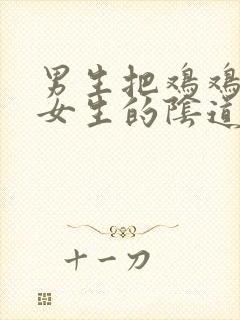 男生把鸡鸡
女生的陰道
十一刀